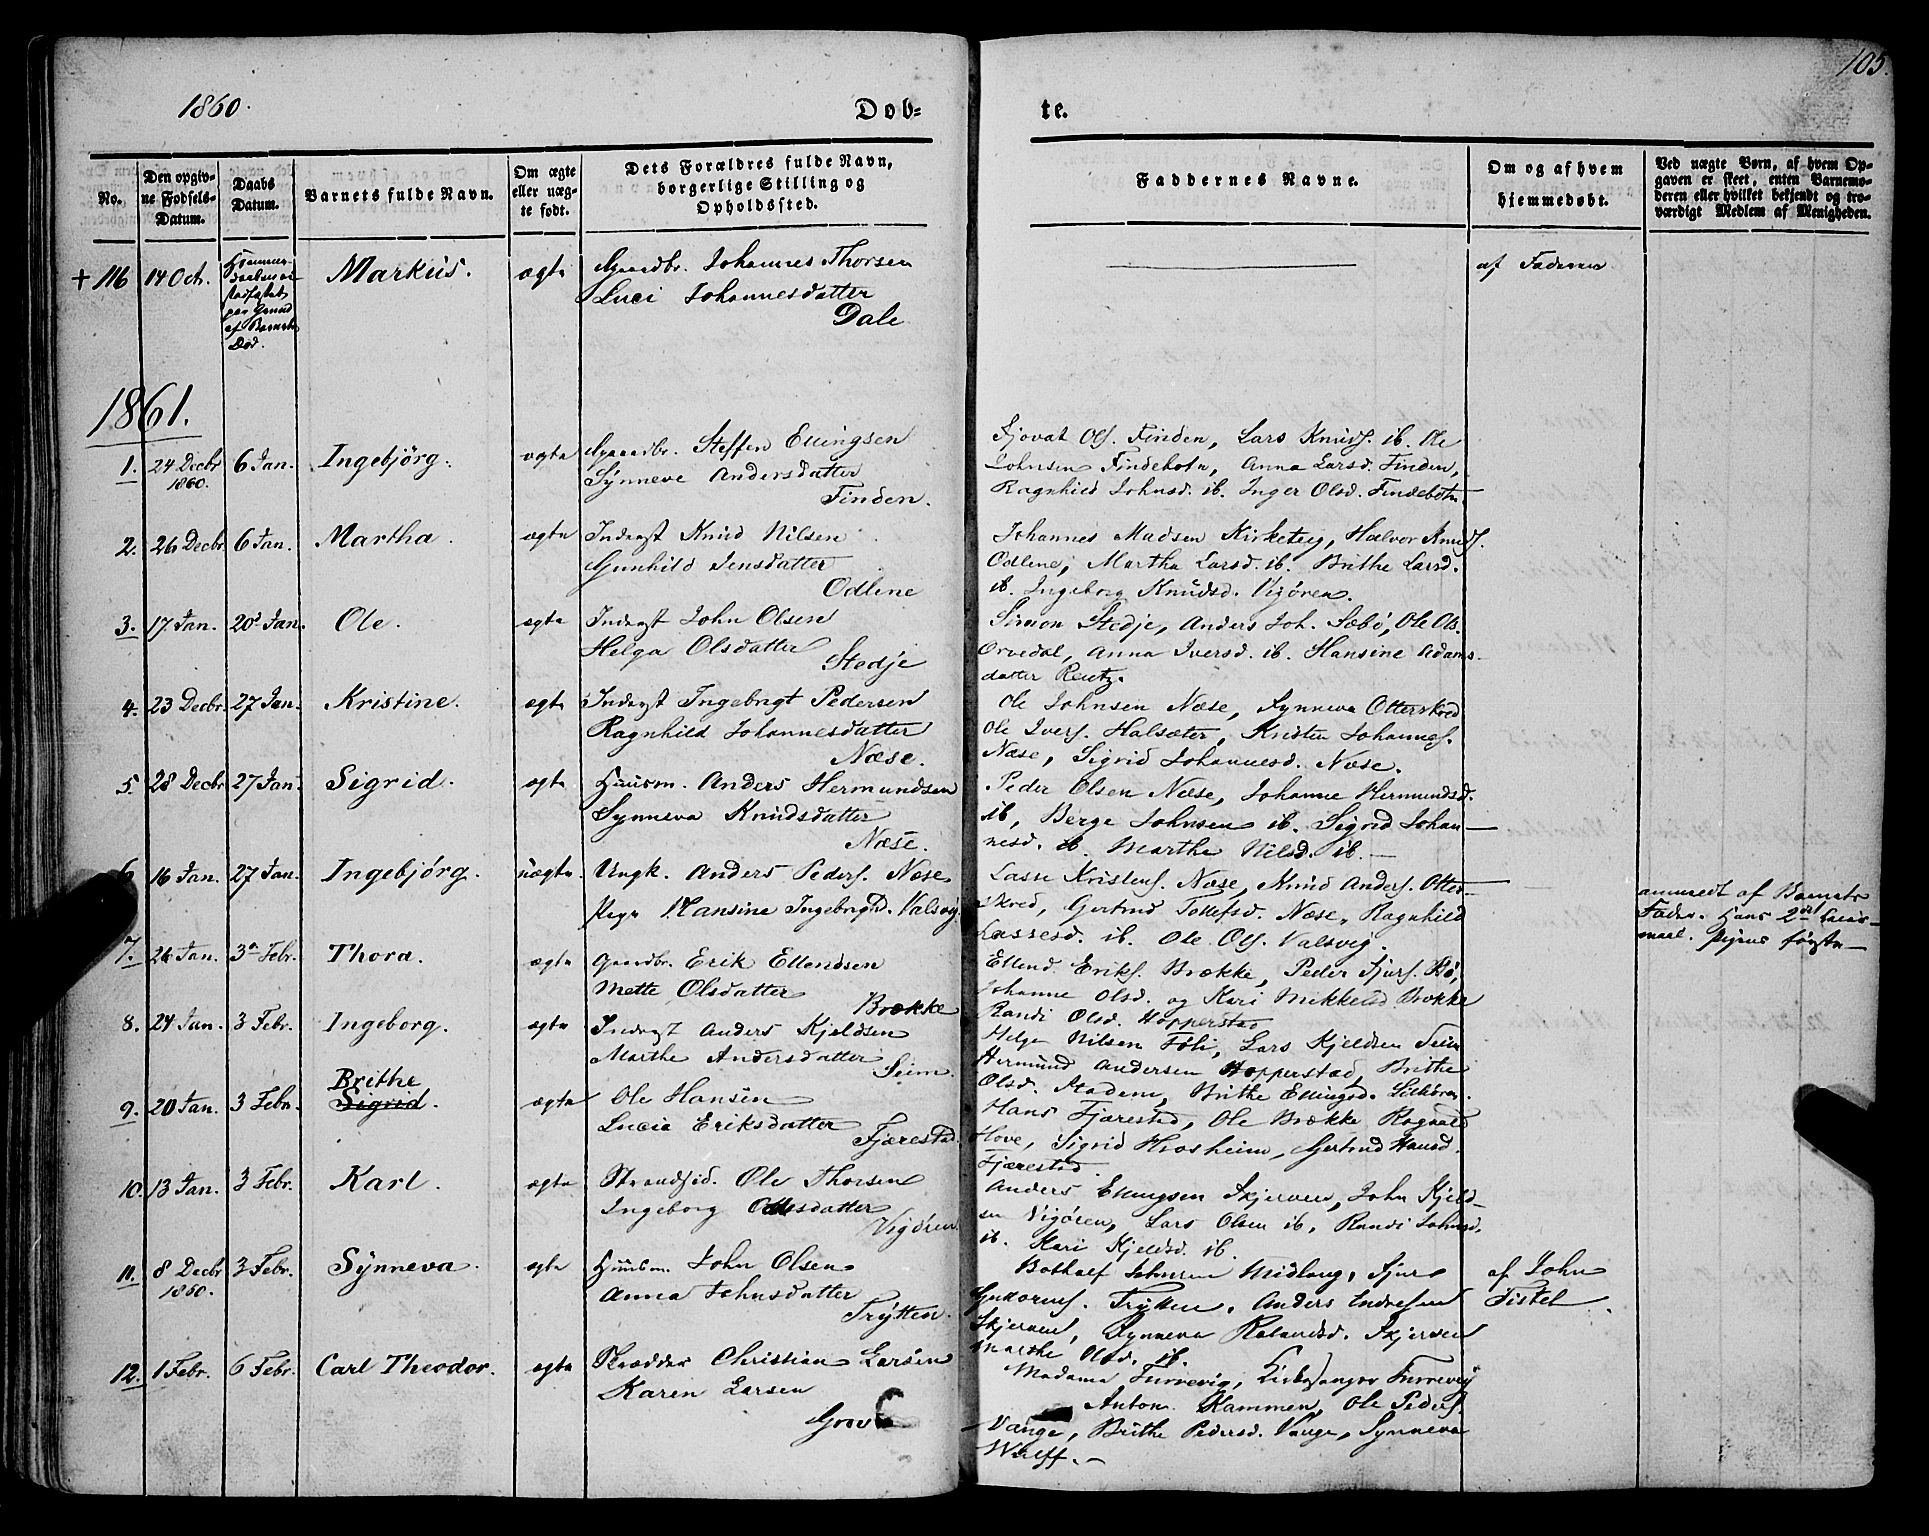 105.
1860.
Dob-
te.
No.
Den opgiv-
ne Fødsels-
Datum.
Daabs
Datum.
Barnets fulde Navn.
Om ægte
eller uæg-
te født.
Dets Forældres fulde Navn,
borgerlige Stilling og
Opholdssted.
Faddernes Navne.
Om og af hvem
hjemmedøbt.
Ved uægte Børn, af hvem Op-
gaven er skeet, enten Barnemo-
deren eller hvilket bekjendt og tro-
værdigt Medlem af Menigheden.
+ 116
14 Oct.
Hjemme-
daaben
stadfæstet
paa Grund
af Barnets
Død.
Markus.
ægte
Gaardbr. Johannes Thorsen
Luci Johannesdatter
Dale
af Faderen
1861.
1.
24 Decbr
1860.
6 Jan.
Ingebjörg.
ægte
Gaardbr. Steffen Ellingsen
Synneve Andersdatter
Finden.
Sjovat Ols. Finden, Lars Knuds. ib. Ole
Johnsen Findebotn, Anna Larsd. Finden,
Ragnhild Johnsd. ib. Inger Olsd. Findebotn
2.
26 Decbr
6 Jan.
Martha.
ægte
Inderst Knud Nilsen
Gunhild Jensdatter
Odlene
Johannes Madsen Kirketeig, Halvor Knuds.
Odlene, Martha Larsd. ib. Brithe Larsd.
ib. Ingeborg Knudsd. Vigören.
3.
17 Jan.
20d Jan.
Ole.
ægte
Inderst John Olsen
Helga Olsdatter
Stedje
Simon Stedje, Anders Joh. Sæbö, Ole Ols.
Orvedal, Anna Iversd. ib. Hansine Adams-
datter Reutz.
4.
23 Decbr.
27 Jan.
Kristine.
ægte
Inderst Ingebrigt Pedersen
Ragnhild Johannesdatter
Næse.
Ole Johnsen Næse, Synneva Otterskred
Ole Ivers. Halsæter, Kristen Johannes.
Næse, Sigrid Johannesd. Næse.
5.
28 Decbr
27 Jan.
Sigrid.
ægte
Huusm. Anders Hermundsen
Synneva Knudsdatter
Næse.
Peder Olsen Næse, Johanne Hermundsd.
ib, Berge Johnsen ib. Sigrid Johan-
nesd. ib. Marthe Nilsd. ib.
6
16 Jan.
27 Jan.
Ingebjörg.
uægte.
Ungk. Anders Peders. Næse
Pige Hansine Ingebrigtd. Valsvig.
Lasse Kristens. Næse, Knud Anders. Otter-
skred, Gertrud Tollefsd. Næse, Ragnhild
Lassesd. ib. Ole Ols. Valsvig.
anmeldt af Barnets
Fader. Hans 2det Leier-
maal. Pigens første
7.
26 Jan.
3die Febr.
Thora.
ægte
Gaardbr. Erik Ellendsen
Mette Olsdatter
Brække
Ellend Eriks. Brække, Peder Sjurs. Bö,
Johanne Olsd. og Kari Mikkelsd Brække
Randi Olsd. Hopperstad
8.
24 Jan.
3 Febr.
Ingeborg.
ægte
Inderst Anders Kjeldsen
Marthe Andersdatter
Seim.
Helge Nilsen Föli, Lars Kjeldsen Seim
Hermund Andersen Hopperstad, Brithe
Olsd. Stadem, Brithe Ellingsd.
9.
20 Jan.
3 Febr.
Brithe
Sigrid.
ægte
Ole Hansen
Lucie Eriksdatter
Fjærestad.
Hans Fjærestad, Ole Brække Ragnald
Hove, Sigrid Hrosheim, Gertrud Hansd.
Fjærestad.
10.
13 Jan.
3 Febr.
Karl.
ægte
Strandsid. Ole Thorsen
Ingeborg Olesdatter
Vigören.
Anders Ellingsen Skjerven, John Kjeld-
sen Vigören, Lars Olsen ib. Randi Johnsd.
ib. Kari Kjeldsd. ib.
11.
8 Decbr
1860.
3 Febr.
Synneva.
ægte
Huusm. John Olsen
Anna Johnsdatter
Trytten.
Botholf Johnsen Midlang, Sjur
Guttorms. Trytten, Anders Endresen
Skjerven, Synneva Rolandsd. Skjerven
Marthe Olsd. ib.
af John
Fistel.
12.
1 Febr.
6 Febr.
Carl Theodor.
ægte
Skrædder Christian Larsen
Karen Larsen
Grove
Madame Turrevig, Kirkesanger Turrevig
Anton Kammen, Ole Peders.
Vange, Brithe Pedersd. Vange, Synneva
Wulff.